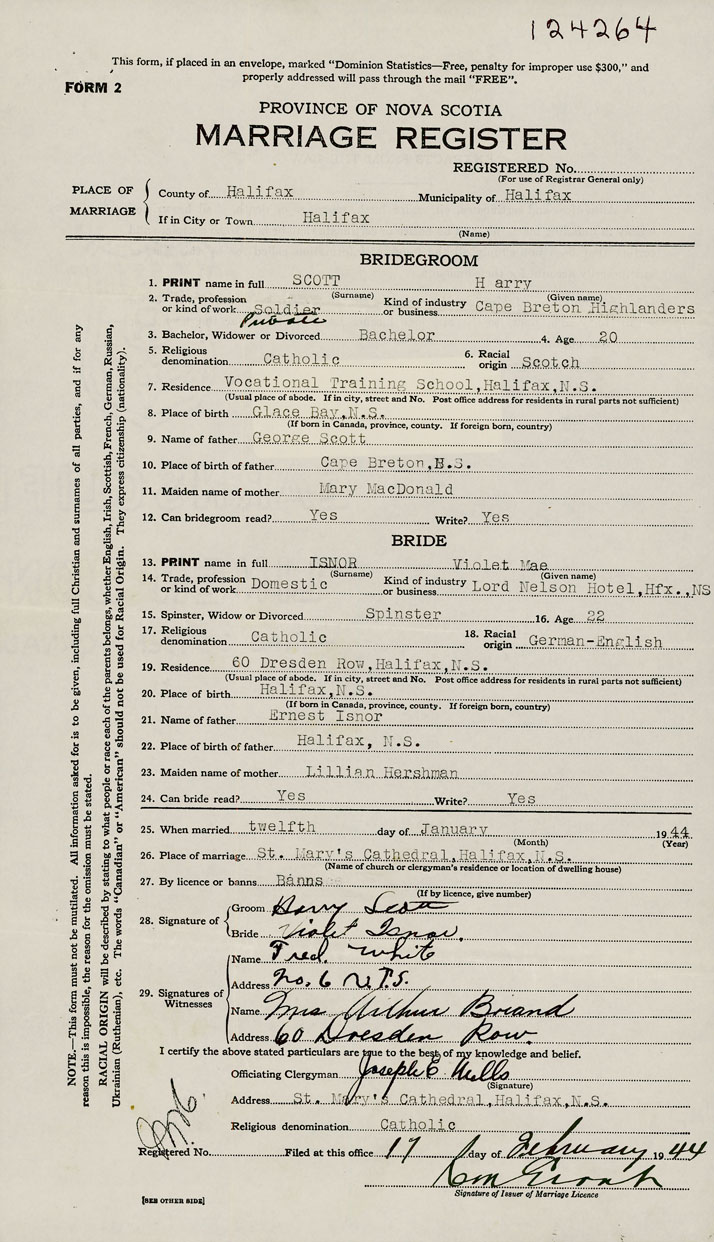 124264
This form, if placed in an envelope, marked "Dominion Statistics—Free, penalty for improper use $300," and
properly addressed will pass through the mail "FREE".
FORM 2
PROVINCE OF NOVA SCOTIA
MARRIAGE REGISTER
REGISTERED No.
(For use of Registrar General only)
PLACE OF MARRIAGE
County of Halifax Municipality of Halifax
If in City or Town Halifax
(Name)
BRIDEGROOM
1. PRINT name in full SCOTT H arry
(Surname) (Given name)
2. Trade, profession or kind of work Soldier Kind of industry or business Cape Breton Highlanders
Private
3. Bachelor, Widower or Divorced Bachelor 4. Age 20
5. Religious denomination Catholic 6. Racial origin Scotch
7. Residence Vocational Training School, Halifax, N.S.
(Usual place of abode. If in city, street and No. Post office address for residents in rural parts not sufficient)
8. Place of birth Glace Bay, N.S.
(If born in Canada, province, county. If foreign born, country)
9. Name of father George Scott
10. Place of birth of father Cape Breton, N.S.
11. Maiden name of mother Mary MacDonald
12. Can bridegroom read? Yes Write? Yes
BRIDE
13. PRINT name in full ISNOR Violet Mae
(Surname) (Given name)
14. Trade, profession or kind of work Domestic Kind of industry or business Lord Nelson Hotel, Hfx., NS
15. Spinster, Widow or Divorced Spinster 16. Age 22
17. Religious denomination Catholic 18. Racial origin German-English
19. Residence 60 Dresden Row, Halifax, N.S.
(Usual place of abode. If in city, street and No. Post office address for residents in rural parts not sufficient)
20. Place of birth Halifax, N.S.
(If born in Canada, province, county. If foreign born, country)
21. Name of father Ernest Isnor
22. Place of birth of father Halifax, N.S.
23. Maiden name of mother Lillian Hershman
24. Can bride read? Yes Write? Yes
25. When married twelfth day of January 1944
(Month) (Year)
26. Place of marriage St. Mary's Cathedral, Halifax, N.S.
(Name of church or clergyman's residence or location of dwelling house)
27. By licence or banns Banns
(If by licence, give number)
28. Signature of
Groom Harry Scott
Bride Violet Isnor.
29. Signatures of Witnesses
Name Fred. White
Address No. 6 V.T.S.
Name Mrs Arthur Briand
Address 60 Dresden Row.
I certify the above stated particulars are true to the best of my knowledge and belief.
Officiating Clergyman Joseph E. Mills
(Signature)
Address St. Mary's Cathedral, Halifax, N.S.
Religious denomination Catholic
Registered No. Filed at this office 17 day of February 1944
Signature of Issuer of Marriage Licence
[SEE OTHER SIDE]
NOTE.—This form must not be mutilated. All information asked for is to be given, including full Christian and surnames of all parties, and if for any
reason this is impossible, the reason for the omission must be stated.
RACIAL ORIGIN will be described by stating to what people or race each of the parents belongs, whether English, Irish, Scottish, French, German, Russian,
Ukrainian (Ruthenian), etc. The words "Canadian" or "American" should not be used for Racial Origin. They express citizenship (nationality).